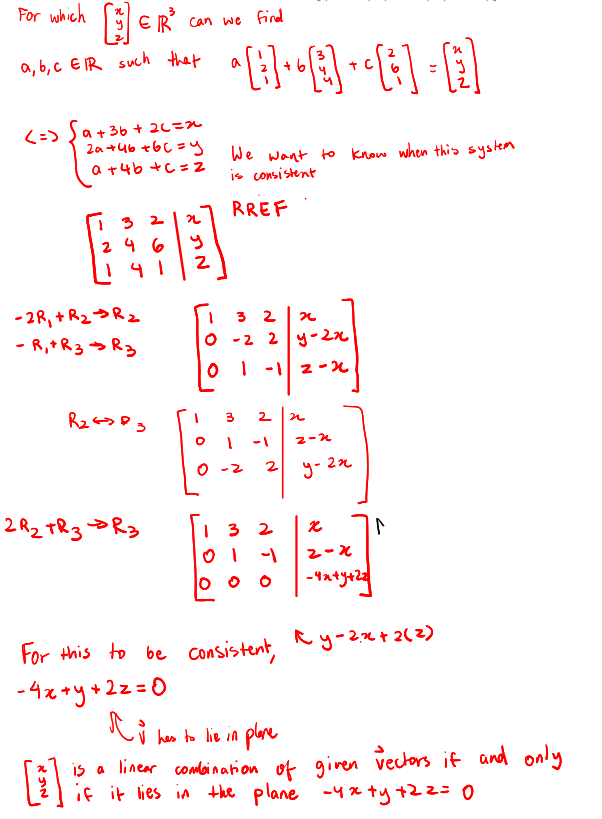 For which [x y z] ∈ ℝ³ can we find
a, b, c ∈ ℝ such that a[1 2 1] + b[3 4 4] + c[2 6 1] = [x y z]
<=> { a + 3b + 2c = x
2a + 4b + 6c = y
a + 4b + c = z
We want to know when this system
is consistent
RREF
[1 3 2 | x
2 4 6 | y
1 4 1 | z]
-2R₁ + R₂ → R₂
-R₁ + R₃ → R₃
[1 3 2 | x
0 -2 2 | y-2x
0 1 -1 | z-x]
R₂ ↔ R₃
[1 3 2 | x
0 1 -1 | z-x
0 -2 2 | y-2x]
2R₂ + R₃ → R₃
[1 3 2 | x
0 1 -1 | z-x
0 0 0 | -4x+y+2z]
For this to be consistent, ↖ y-2x+2(z)
-4x+y+2z=0
↖ v⃗ has to lie in plane
[x y z] is a linear combination of given vectors if and only
if it lies in the plane -4x+y+2z=0